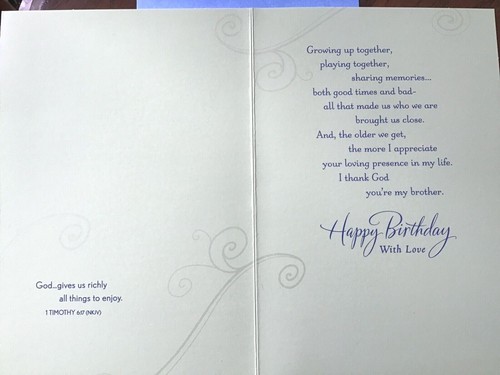 God...gives us richly
all things to enjoy.
1 TIMOTHY 6:17 (NKJV)
Growing up together,
playing together,
sharing memories...
both good times and bad-
all that made us who we are
brought us close.
And, the older we get,
the more I appreciate
your loving presence in my life.
I thank God
you're my brother.
Happy Birthday
With Love